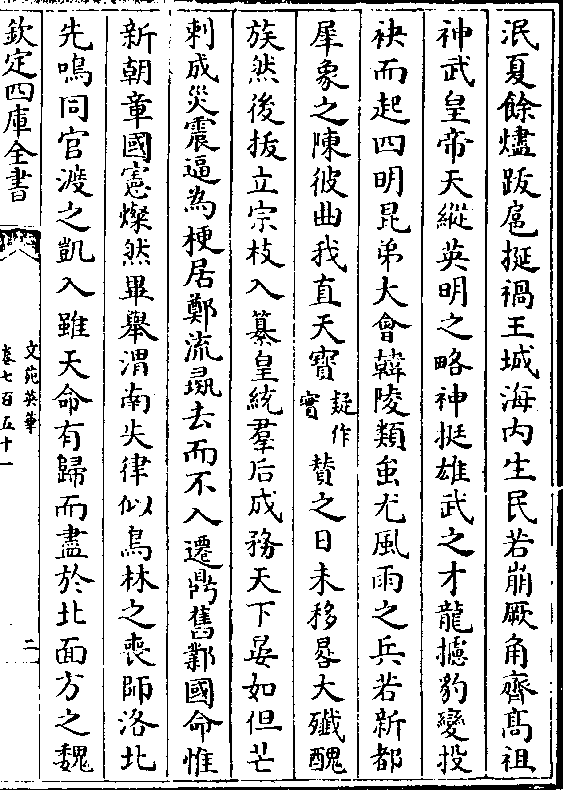 泯夏餘燼跋扈挻禍王城海内生民若崩厥角齊髙祖
神武皇帝天縱英明之略神挺雄武之才龍攄豹變投
袂而起四明昆弟大會韓陵類蚩尤風雨之兵若新都
犀象之陳彼曲我直天寳疑作實贊之日未移晷大殲醜
族然後拔立宗枝入纂皇統羣后成務天下晏如但芒
刺成災震逼為梗居鄭流彘去而不入遷鼎舊鄴國命惟
新朝章國憲燦然畢舉渭南失律似烏林之喪師洛北
先鳴同官渡之凱入雖天命有歸而盡於北面方之魏
欽定四庫全書
文苑英華
卷七百五十一
二